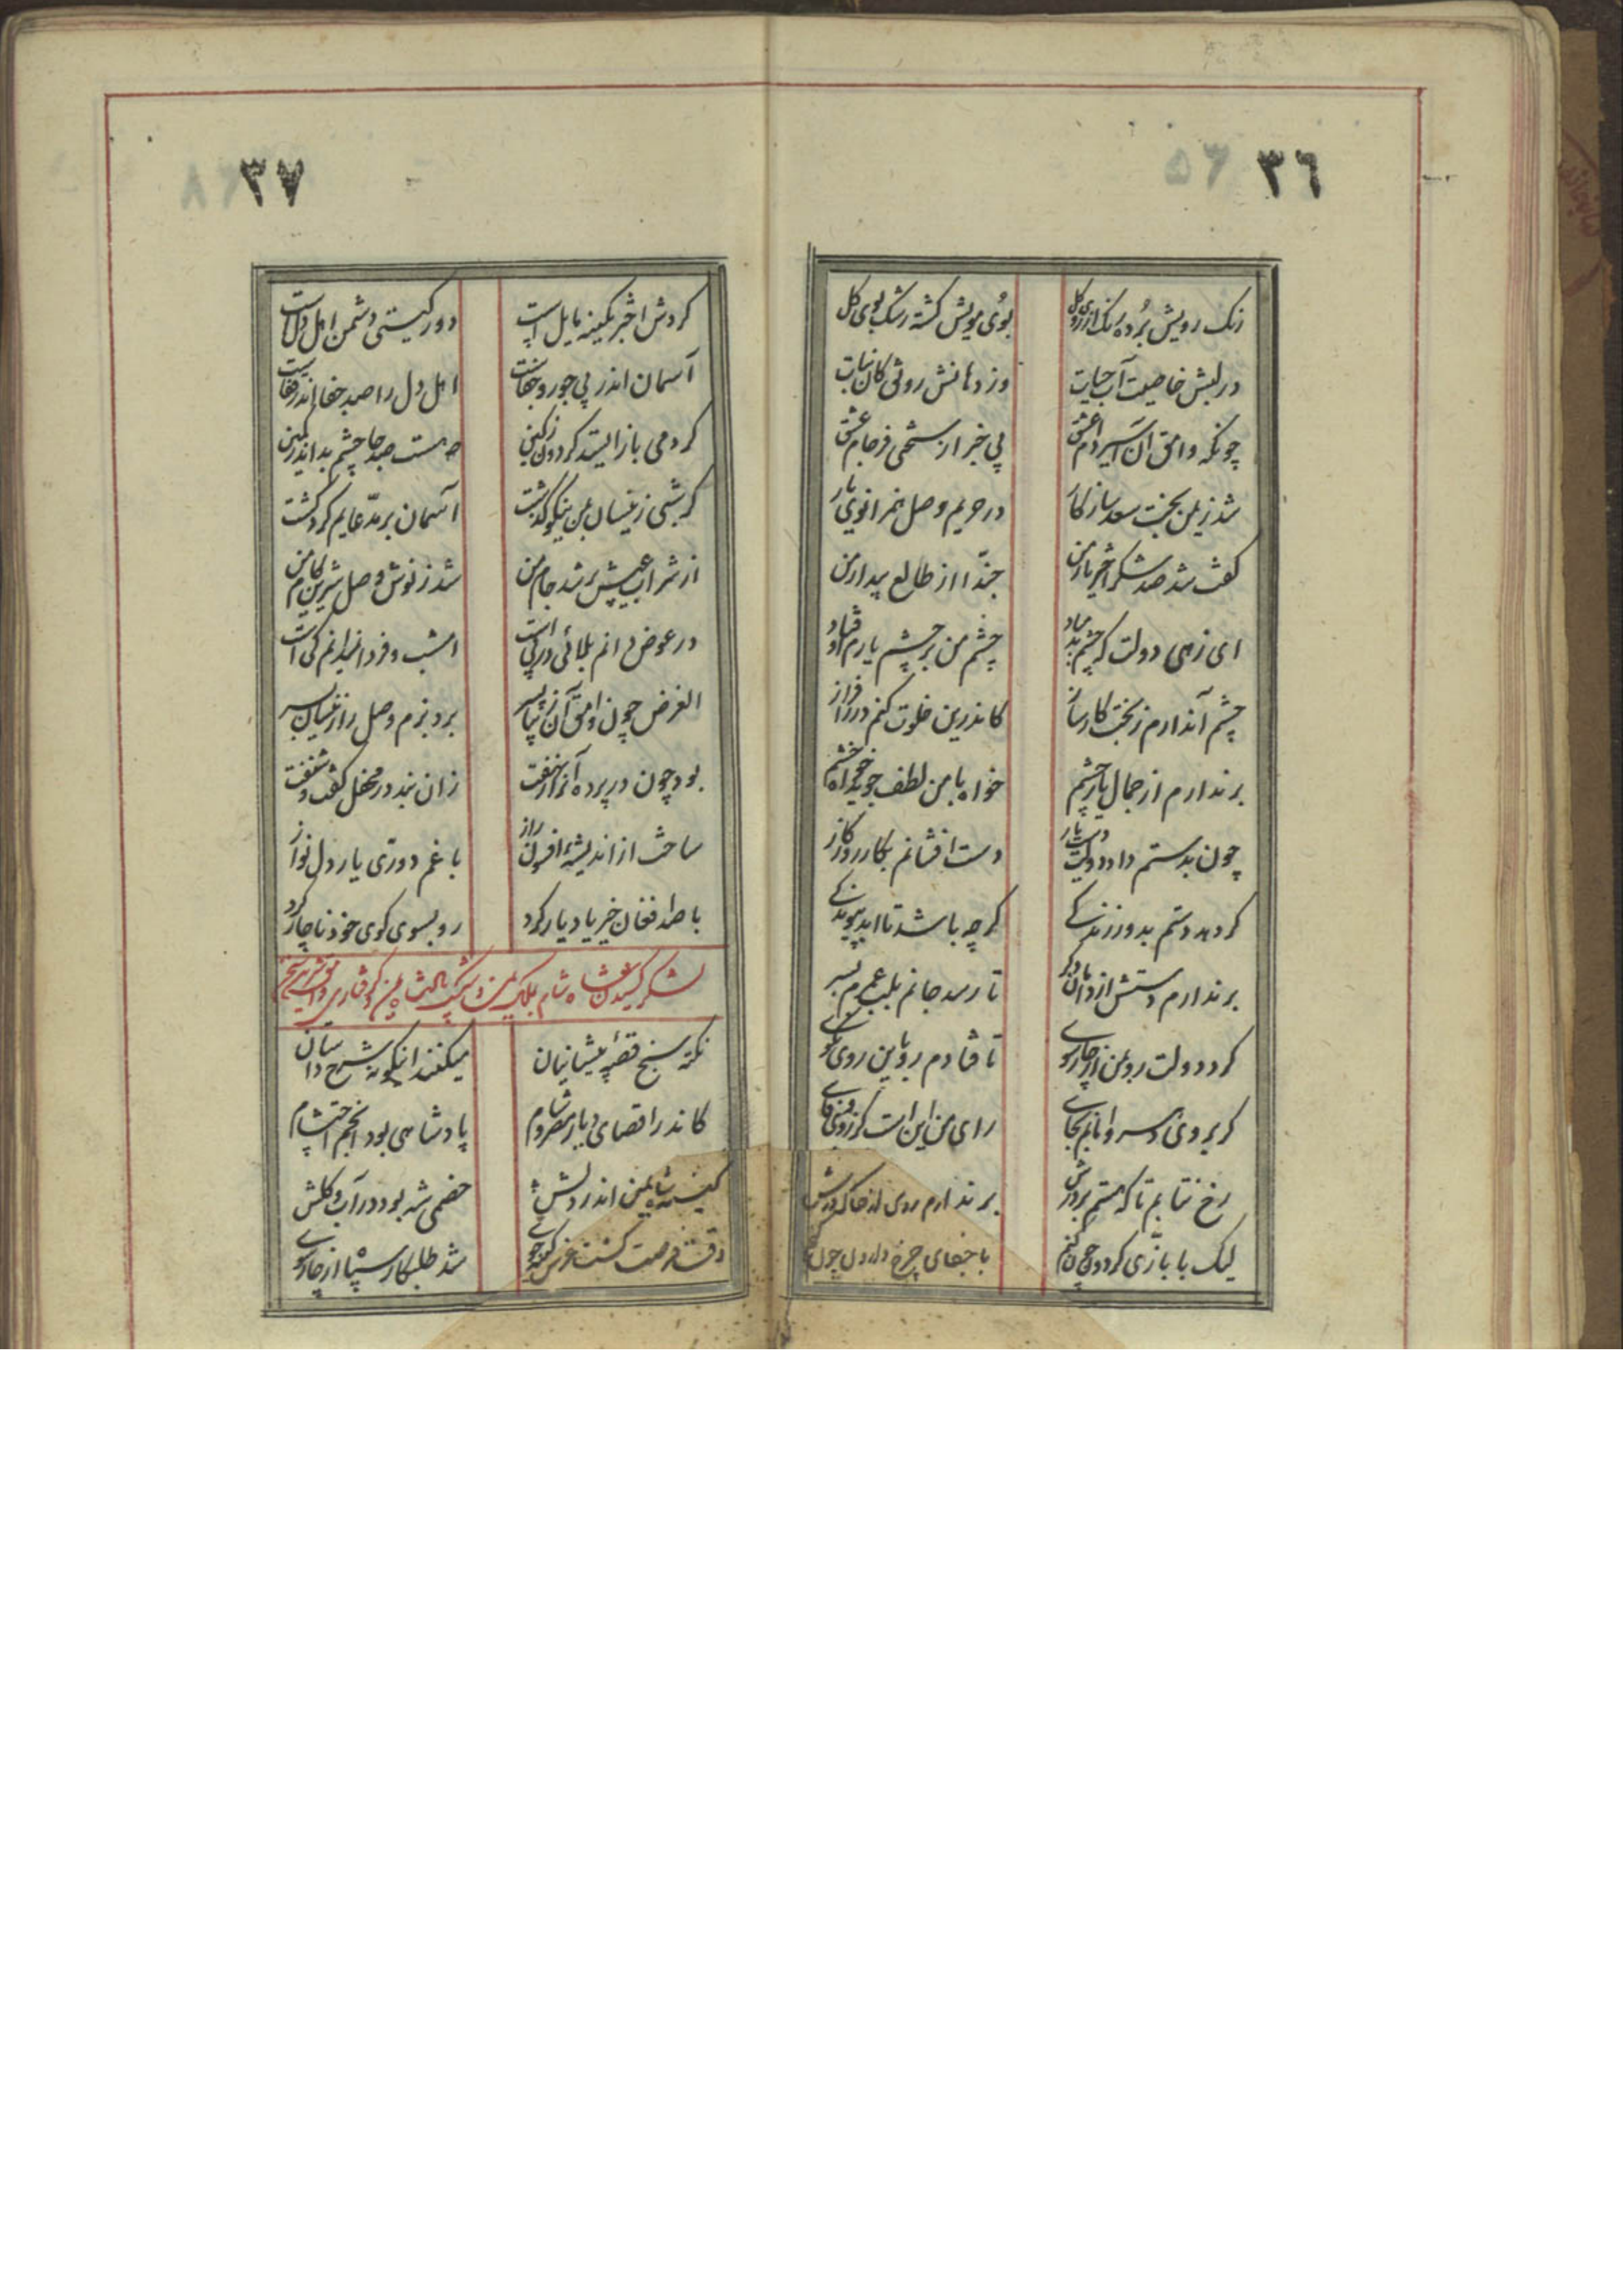 ٣٦
رنک رویش برده رنک از روی کل
بوی مویش کشته رشک بوی کل
در لبش خاصیت آب حیات
وز دهانش رونق کان نبات
چونکه وامق آن اسیر دام عشق
بی خبر از سختی فرجام عشق
شد ز یمن بخت سعد سازکار
در حریم وصل بانوی یار
کفت شد صد شکر اختر یار من
حبّذا از طالع بیدار من
ای زهی دولت که چشم بد مباد
چشم من بر چشم یارم اوفتاد
چشم آن دارم ز بخت کارساز
کاندرین خلوت کنم در را فراز
برندارم از جمال یار چشم
خواه با من لطف جوید خواه خشم
چون بدستم داد دولت دست یار
دست افشانم بکار روزکار
کر دهد دستم بدو زنده کی
کر چه باشد تا ابد پیوند کی
برندارم دستش از دامان دکر
تا رسد جانم بلب عمرم بسر
کرد دولت رو بمن از چارسوی
تا فتادم رو باین روی نکوی
کر برو دی سر و بانم بجای
رای من این است کز روی
رخ نتابم تا که هستم بر درش
برندارم روی از خاک درش
لیک با بازی کردون چون کنم
با جفای چرخ دارد دل چون کنم
٣٧
کردش اختر بکینه مایل است
دور کیتی دشمن اهل دل است
آسمان اندر پی جور و جفاست
اهل دل را صد جفا اندر قفاست
کر دمی باز ایستد کردون ز کین
هست صد جا چشم بد اندر کمین
کر شبی زینسان بمن نیکو کذشت
آسمان بر مدّعایم کرد کشت
از شراب عیش پر شد جام من
شد ز نوش وصل شیرین کام من
در عوض دانم بلائی در پی است
امشب و فردا ندانم کی است
الغرض چون وامق آن زیبا پسر
برد بزم وصل را زینسان بسر
بود چون در پرده آن راز نهفت
زان نبد در محفل کفت و شنفت
ساخت از اندیشهٔ افزون راز
با غم دوری یار دل نواز
با صد فغان خیرباد یار کرد
رو بسوی کوی خود ناچار کرد
لشکر کشیدن شاه شام بملک یمن و شکست پادشاه یمن و کرفتاری وامق
نکته سنج قصّهٔ پیشانیان
میکند اینکونه شرح داستان
کاندر اقصای دیار مصر و شام
پادشاهی بود انجم احتشام
کینهٔ شاه یمن اندر دلش
خصمی شه بود در آب و کلش
وقت فرصت کشت عزمش کینه جوی
شد طلبکار سپاه از چارسوی